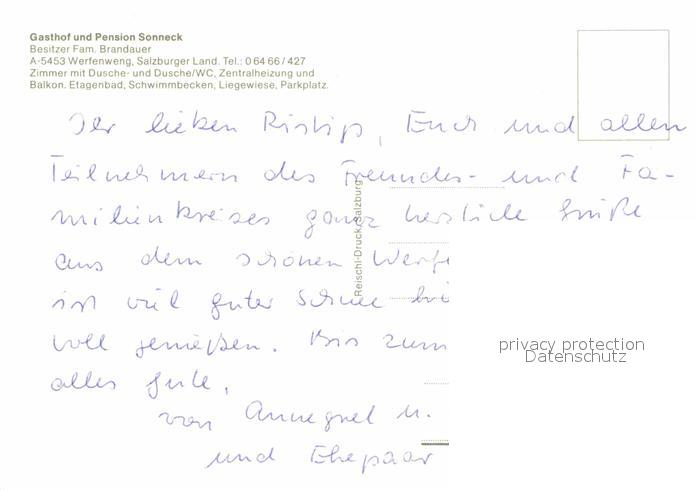 Gasthof und Pension Sonneck
Besitzer Fam. Brandauer
A-5453 Werfenweng, Salzburger Land. Tel.: 0 64 66 / 427
Zimmer mit Dusche- und Dusche/WC, Zentralheizung und
Balkon. Etagenbad, Schwimmbecken, Liegewiese, Parkplatz.
Ihr lieben, Euch und allen
Teilnehmern des Freundes- und Fa-
milienkreises ganz herzliche Grüße
aus dem schönen Werfe
ist viel guter Schnee
voll genießen. Bis zum
alles Gute,
von Annegret u.
und Ehepaar
Reischl-Druck, Salzburg
privacy protection
Datenschutz